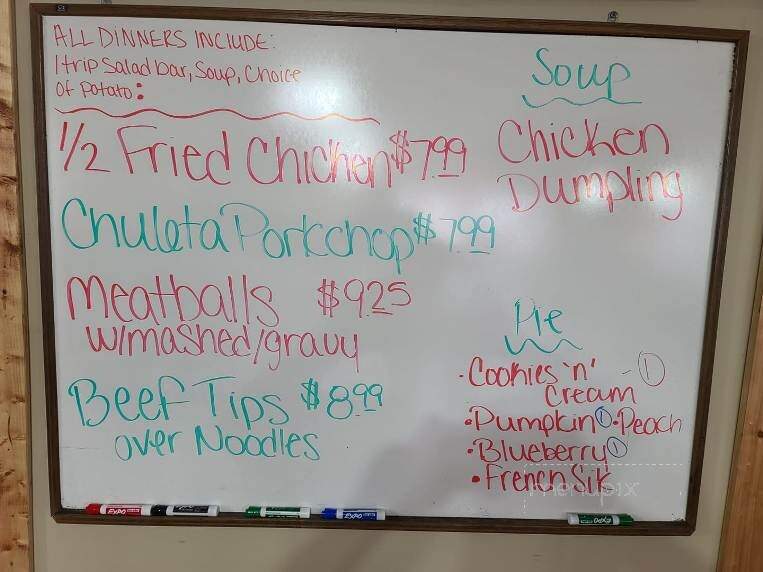 ALL DINNERS INCLUDE:
1 trip Salad bar, Soup, Choice
of potato:
1/2 Fried Chicken $7.99
Chuleta Porkchop $7.99
Meatballs $9.25
w/mashed/gravy
Beef Tips $8.99
over Noodles
Soup
Chicken
Dumpling
Pie
• Cookies 'n' - 1
Cream
• Pumpkin 1 • Peach
• Blueberry 1
• French Silk
menupix
EXPO
EXPO
EXPO